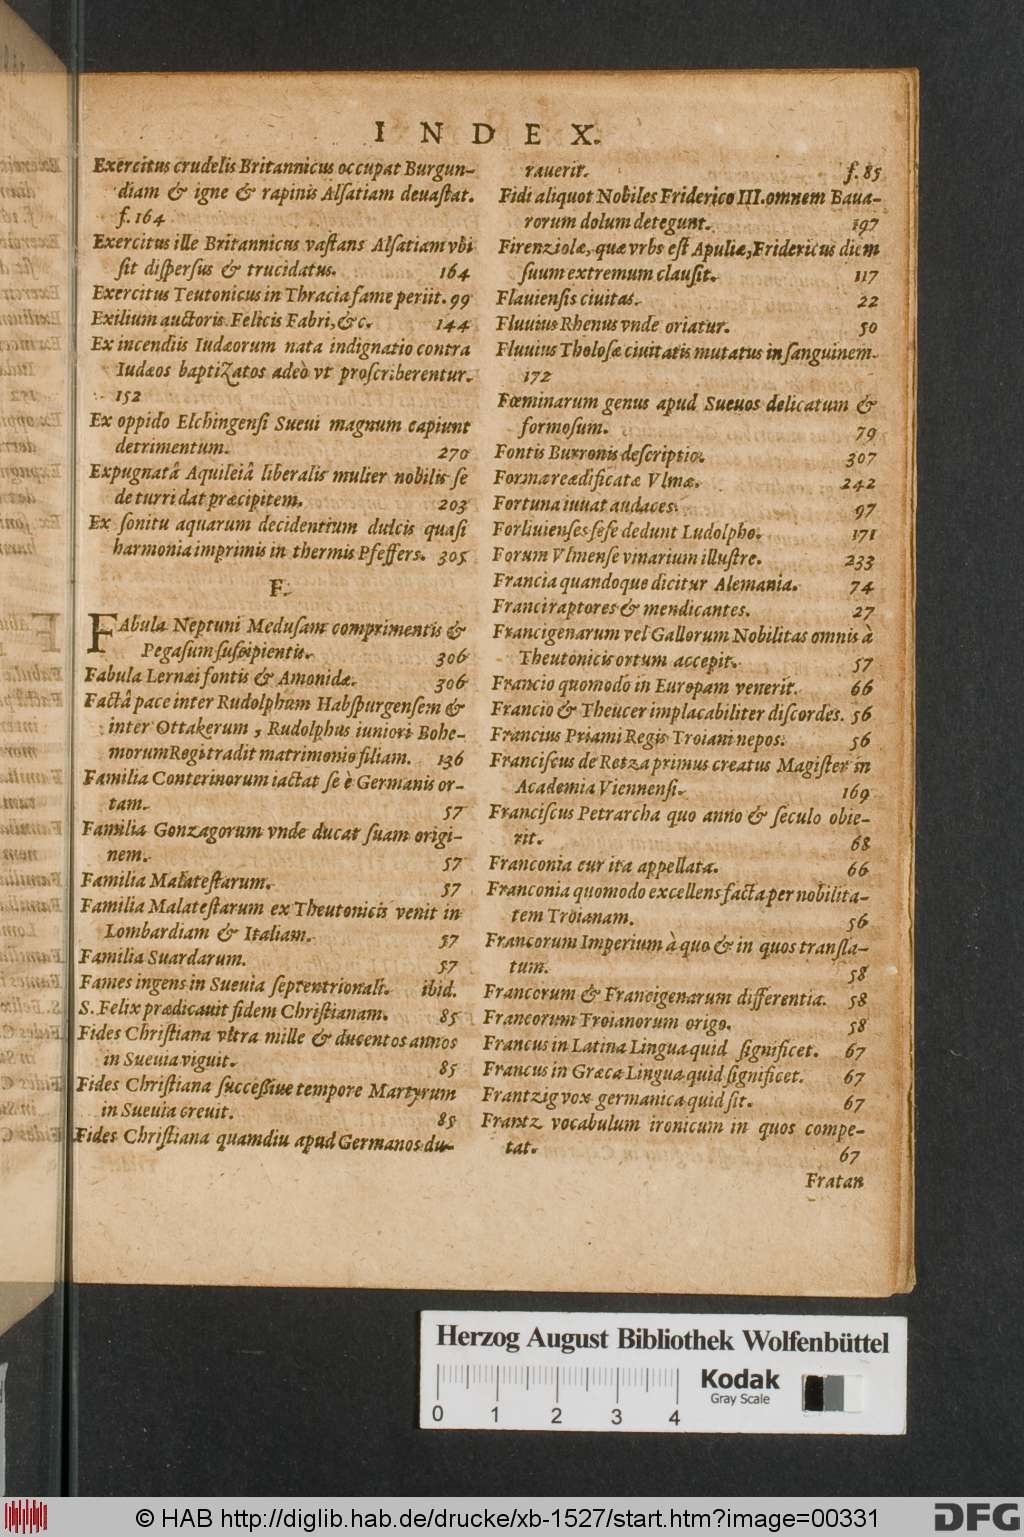 INDEX.
Exercitus crudelis Britannicus occupat Burgun-
diam & igne & rapinis Alſatiam deuaſtat.
f. 164
Exercitus ille Britannicus vaſtans Alſatiam vbi
ſit diſperſus & trucidatus. 164
Exercitus Teutonicus in Thracia fame periit. 99
Exilium auctoris Felicis Fabri, &c. 144
Ex incendiis Iudæorum nata indignatio contra
Iudæos baptizatos adeò vt proſcriberentur.
152
Ex oppido Elchingenſi Sueui magnum capiunt
detrimentum. 270
Expugnatâ Aquileiâ liberalis mulier nobilis ſe
de turri dat præcipitem. 203
Ex ſonitu aquarum decidentium dulcis quaſi
harmonia imprimis in thermis Pfeffers. 305
F.
FAbula Neptuni Meduſam comprimentis &
Pegaſum ſuſcipientis. 306
Fabula Lernæi fontis & Amonidæ. 306
Factâ pace inter Rudolphum Habſpurgenſem &
inter Ottakerum, Rudolphus iuniori Bohe-
morum Regi tradit matrimonio filiam. 136
Familia Conterinorum iactat ſe è Germanis or-
tam. 57
Familia Gonzagorum vnde ducat ſuam origi-
nem. 57
Familia Malateſtarum. 57
Familia Malateſtarum ex Theutonicis venit in
Lombardiam & Italiam. 57
Familia Suardarum. 57
Fames ingens in Sueuia ſeptentrionali. ibid.
S. Felix prædicauit fidem Chriſtianam. 85
Fides Chriſtiana vltra mille & ducentos annos
in Sueuia viguit. 85
Fides Chriſtiana ſucceſſiue tempore Martyrum
in Sueuia creuit. 85
Fides Chriſtiana quamdiu apud Germanos du-
rauerit. f. 85
Fidi aliquot Nobiles Friderico III. omnem Baua-
rorum dolum detegunt. 197
Firenziolæ, quæ vrbs eſt Apuliæ, Fridericus diem
ſuum extremum clauſit. 117
Flauienſis ciuitas. 22
Fluuius Rhenus vnde oriatur. 50
Fluuius Tholoſæ ciuitatis mutatus in ſanguinem.
172
Fœminarum genus apud Sueuos delicatum &
formoſum. 79
Fontis Burronis deſcriptio. 307
Forma reædificatæ Vlmæ. 242
Fortuna iuuat audaces. 97
Forliuienſes ſeſe dedunt Ludolpho. 171
Forum Vlmenſe vinarium illuſtre. 233
Francia quandoque dicitur Alemania. 74
Franci raptores & mendicantes. 27
Francigenarum vel Gallorum Nobilitas omnis à
Theutonicis ortum accepit. 57
Francio quomodo in Europam venerit. 66
Francio & Theucer implacabiliter diſcordes. 56
Francius Priami Regis Troiani nepos. 56
Franciſcus de Retza primus creatus Magiſter in
Academia Viennenſi. 169
Franciſcus Petrarcha quo anno & ſeculo obie-
rit. 68
Franconia cur ita appellata. 66
Franconia quomodo excellens facta per nobilita-
tem Troianam. 56
Francorum Imperium à quo & in quos transla-
tum. 58
Francorum & Francigenarum differentia. 58
Francorum Troianorum origo. 58
Francus in Latina Lingua quid ſignificet. 67
Francus in Græca Lingua quid ſignificet. 67
Frantzig vox germanica quid ſit. 67
Frantz vocabulum ironicum in quos compe-
tat. 67
Fratan
Herzog August Bibliothek Wolfenbüttel
Kodak
Gray Scale
0 1 2 3 4
© HAB http://diglib.hab.de/drucke/xb-1527/start.htm?image=00331
DFG